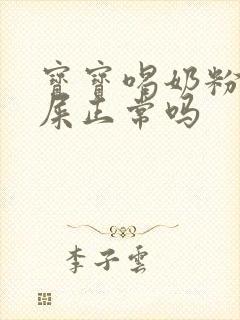 寳寳喝奶粉
屎正常吗
李子雲